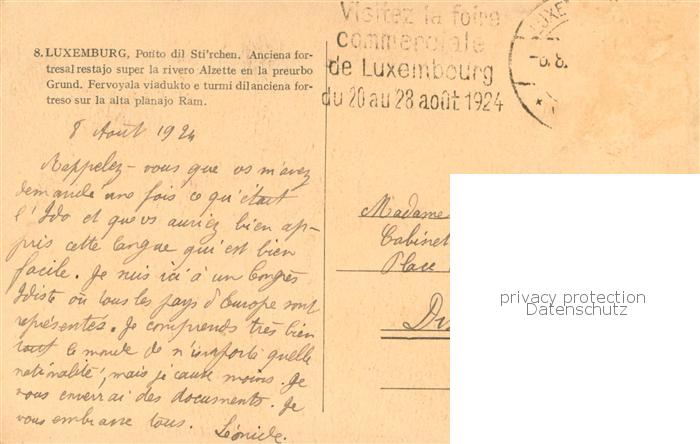 8. LUXEMBURG, Ponto dil Sti'rchen. Anciena for-
tresal restajo super la rivero Alzette en la preurbo
Grund. Fervoyala viadukto e turmi dil anciena for-
treso sur la alta planajo Ram.
Visitez la foire
commerciale
de Luxembourg
du 20 au 28 août 1924
8 Août 1924
Rappelez-vous que vs m'avez
demandé une fois ce qu'était
l'Ido et que vs auriez bien ap-
pris cette langue qui est bien
facile. Je suis ici à un Congrès
Idiste où tous les pays d'Europe sont
représentés. Je comprends très bien
tout le monde de n'importe quelle
nationalité, mais je cause moins. Je
vous enverrai des documents. Je
vous embrasse tous.
Léonide.
Madame
Cabinet
Place
privacy protection
Datenschutz